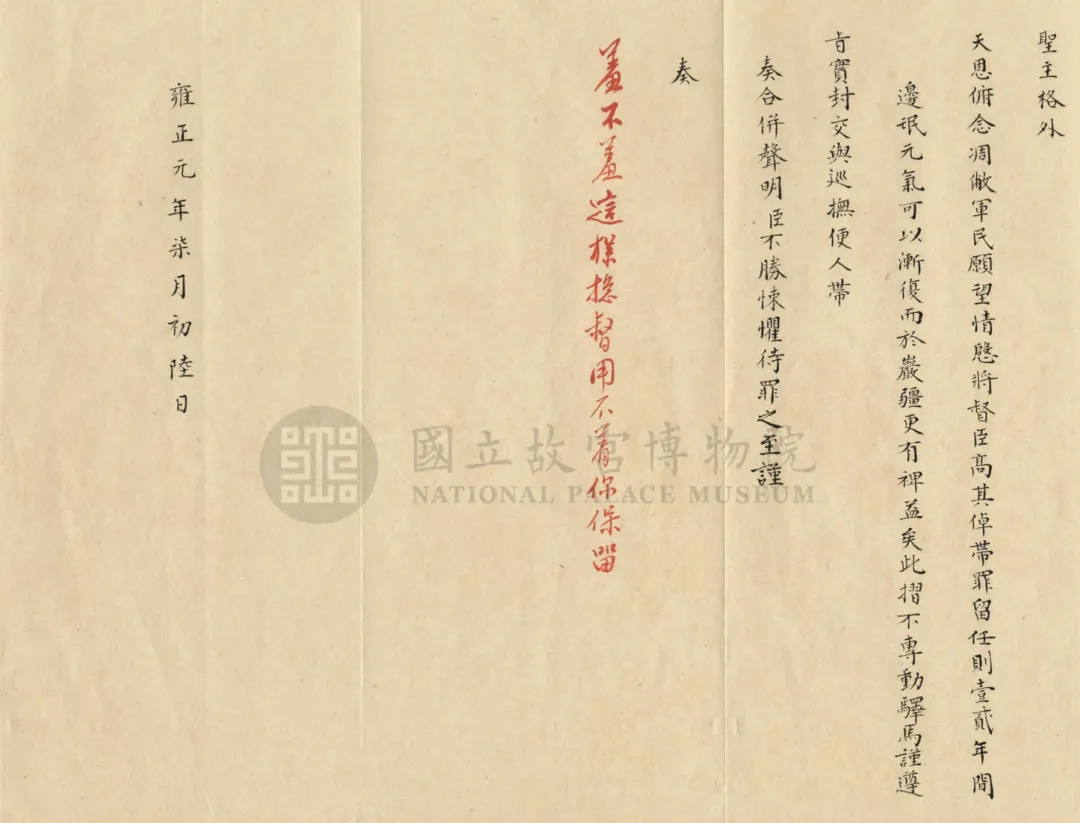 聖主格外
天恩俯念凋敝軍民願望情慇將督臣高其倬帶罪留任則壹貳年間
邊氓元氣可以漸復而於巖疆更有裨益矣此摺不專動驛馬謹遵
旨賫封交與巡撫便人帶
奏合併聲明臣不勝悚懼待罪之至謹
奏
羞不羞這樣總督用不着你保留
雍正元年柒月初陸日
國立故宮博物院
NATIONAL PALACE MUSEUM